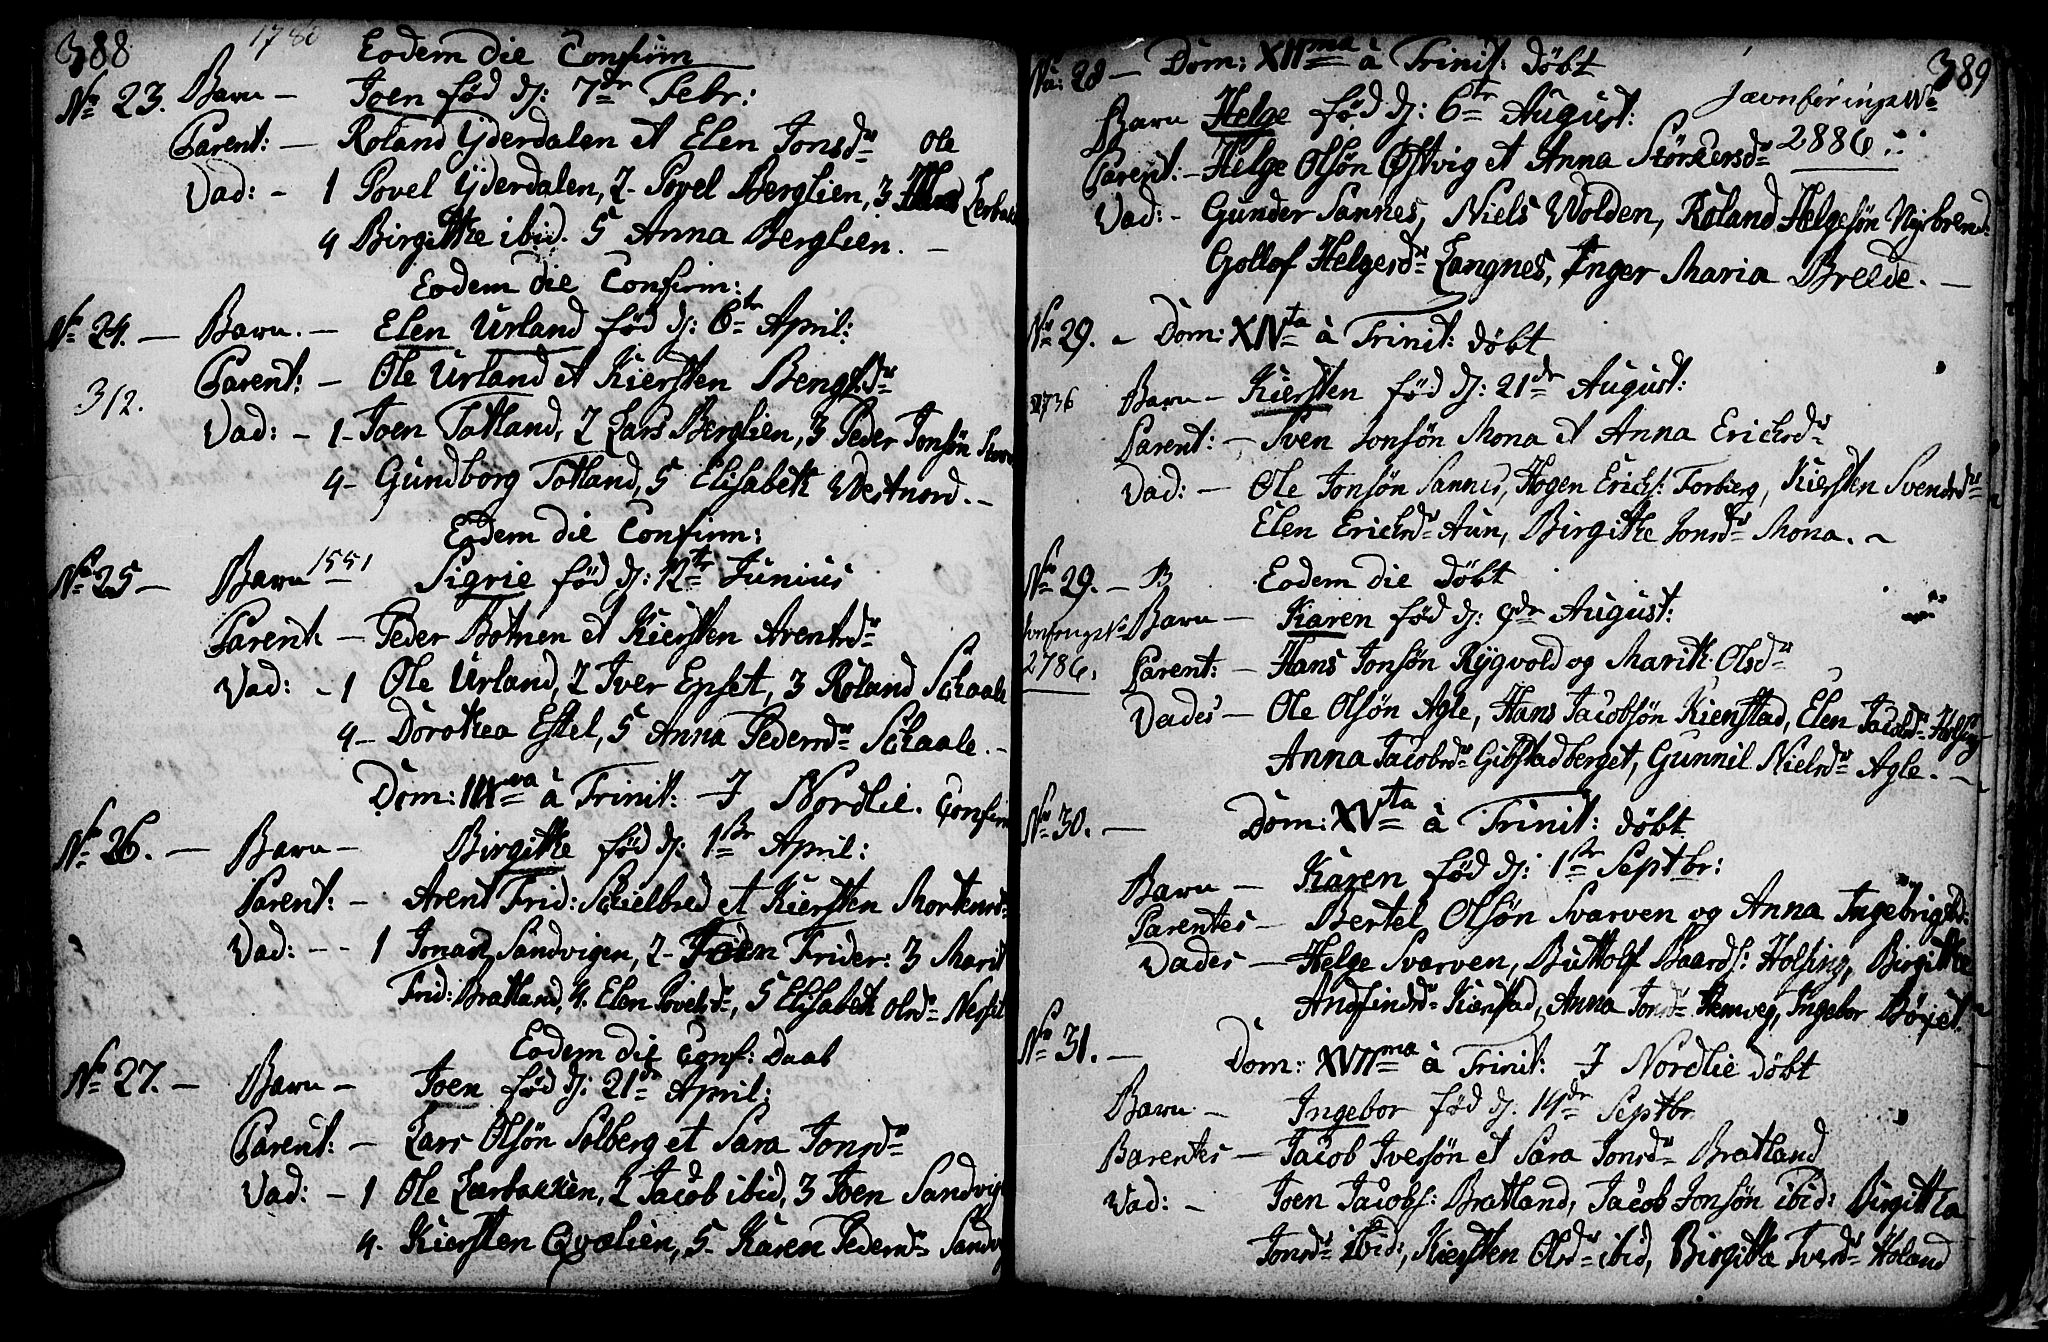 388
1780 Eodem die Confirm
No 23. Barn — Joen fød dJ: 7de Febr:
Parent: — Roland Yderdalen et Elen Jonsdr
Vad: - 1 Povel Yderdalen, 2- Povel Berglien, 3 Ole
4 Birgitthe ibid. 5 Anna Berglien. —
Eodem die Confirm:
No 24. — Barn. — Elen Urland fød dJ: 6te April:
Parent: — Ole Urland et Kiersten
312.
Vad: - 1- Joen Totland, 2 Lars Berglien, 3 Peder Jonsøn
4- Gundborg Totland, 5 Elisabeth Westnord. -
Eodem die Confirm:
No 25 — Barn 1551 Sigrie fød dJ: 12te Junius
Parent — Peder Botnen et Kiersten Arentsdr
Vad: - 1 Ole Urland, 2 Iver Epset, 3 Roland Schaale
4- Dorothea Estel, 5 Anna Pedersdr Schaale. -
Dom: à Trinit: I Nordlie. Confirm
No 26. — Barn — Birgitthe fød dJ: 1ste April:
Parent: — Arent Frid: Skielbred et Kiersten Mortensdr
Vad: -- 1 Jonas Sandvigen, 2- Joen Frider: 3 Marit
Frid: Bratland, 4. Elen Povelsdr, 5 Elisabeth Olsdr
Eodem die Conf: Daab
No 27. — Barn — Joen fød dJ: 21de April:
Parent: — Lars Olsøn Solberg et Sara Jonsdr
Vad: - 1 Ole Lærbakken, 2 Jacob ibid, 3 Joen
4. Kiersten Qvælien, 5- Karen Pedersdr
389
No: 28 — Dom: XIIma à Trinit: døbt
Barn Helge fød dJ: 6te August: Jævnførings No
Parent: - Helge Olsøn Østvig et Anna Størkersdr 2886
Vad: - Gunder Sannes, Niels Wolden, Roland Helgesøn Nybrend:
Gollof Helgesdr Langnes, Inger Maria Brede. —
No 29. - Dom: XIVta à Trinit: døbt
1736 Barn - Kiersten fød dJ: 21de August:
Parent: - Sven Jonsøn Mona et Anna Ericksdr
Vad: — Ole Jonsøn Sannes, Hogen Erichs: Forberg, Kiersten Svendsdr
Elen Ericksdr Aun, Birgithe Jonsdr Mona. ~
No 29. - B Eodem die døbt
Barn — Karen fød dJ: 9de August:
2786. Parent: — Hans Jonsøn Rygvold og Marith Olsdr
Vades — Ole Olsøn Agle, Hans Jacobsøn Kienstad, Elen Jacobsdr
Anna Jacobsdr Gibstadberget, Gunnil Nielsdr Agle. -
No 30. — Dom: XVta à Trinit: døbt
Barn — Karen fød dJ: 1ste Septbr:
Parentes — Bertel Olsøn Svarven og Anna Ingebrigtsdr
Vades — Helge Svarven, Buttolf Baards: Holsing, Birgitthe
Andfindsdr Kienstad, Anna Jonsdr Hemveg, Ingebor
No 31. — Dom: XVIIma à Trinit: I Nordlie døbt
Barn - Ingebor fød dJ. 14de Septbr
Barentes — Jacob Ivesøn et Sara Jonsdr Bratland
Vad: - Joen Jacobs: Bratland, Jacob Jonsøn ibid: Birgitta
Jonsdr ibid:, Kiersten Olsdr ibid, Birgitta Iversdr Holand